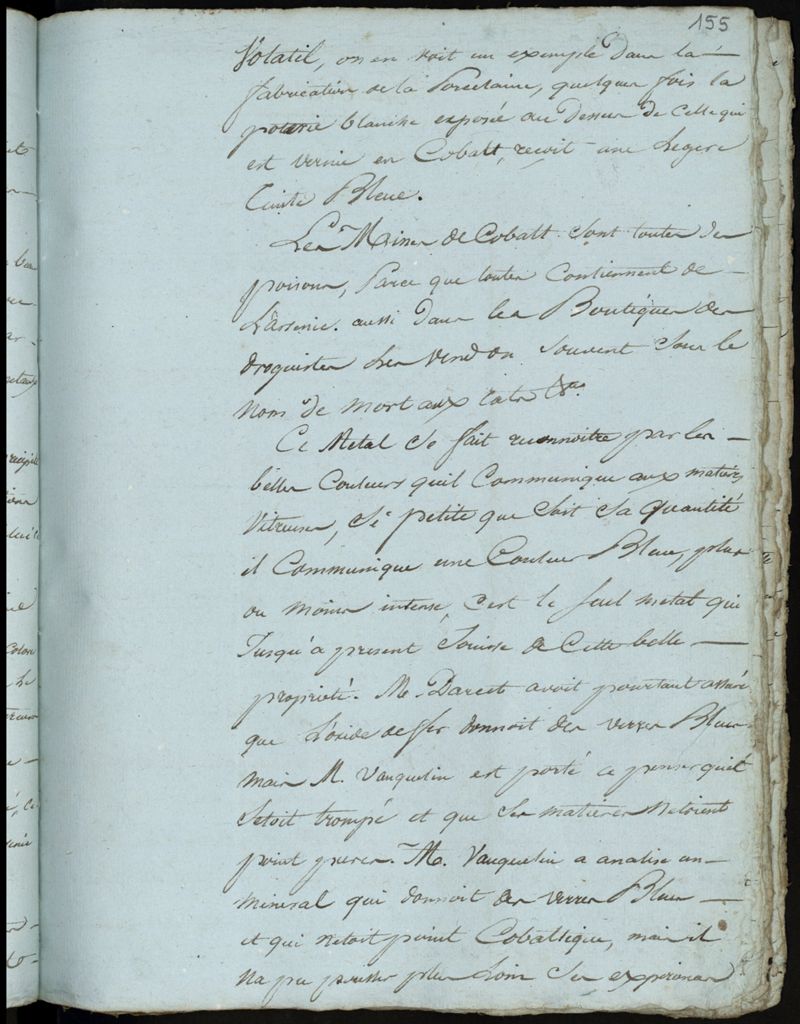 155
Volatil, on en voit un exemple dans la
fabrication de la Porcelaine, quelques fois la
poterie blanche exposée au Dessus de Celle qui
est vernie en Cobalt, reçoit une Legere
Teinte Bleue.
Les Mines de Cobalt sont toutes des
poisons, Parce que toutes Contiennent de
L'arsenic. aussi Dans les Boutiques des
droguistes Les vend on souvent sous le
nom de mort aux rats &a.
Ce Metal se fait reconnoitre par les
belles Couleurs quil Communique aux matieres
Vitreuses, Si petite que soit sa quantité
il Communique une Couleur Bleue, plus
ou moins intense, c'est le seul metal qui
Jusqu'à present Jouisse de Cette belle
proprieté. M. Darcet avoit pourtant assuré
que L'oxide de fer donnoit des verres Bleus
mais M. Vauquelin est porté a penser quil
setoit trompé et que ses matieres netoient
point pures. M. Vauquelin a analisé un
mineral qui donnoit des verres Bleus
et qui netoit point Cobaltique, mais il
na pu pousser plus Loin ses experiences